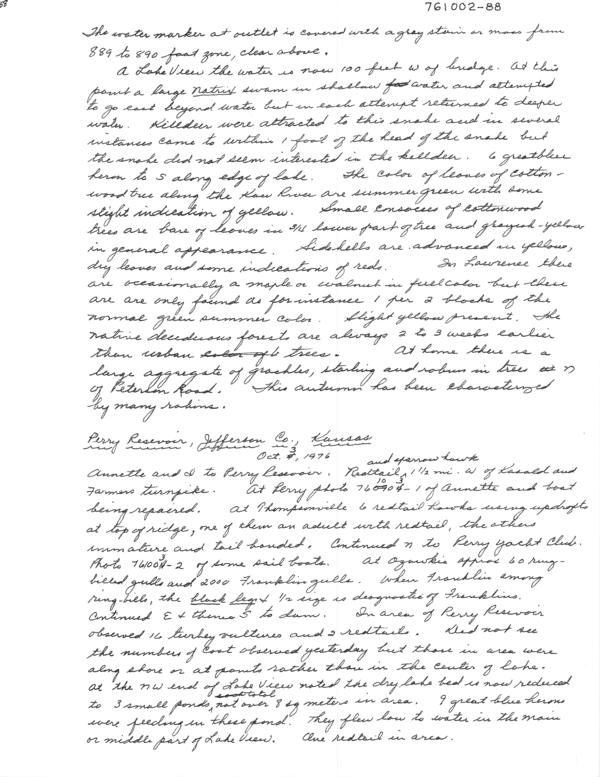 88
761002-88
The water marker at outlet is covered with a gray stain or moss from
889 to 890 foot zone, clear above.
A Lake View the water is now 100 feet W of bridge. At this
point a large Natrix swam in shallow water and attempted
to go east beyond water but in each attempt returned to deeper
water. Killdeer were attracted to this snake and in several
instances came to within 1 foot of the head of the snake but
the snake did not seem interested in the killdeer. 6 great blue
heron to S along edge of lake. The color of leaves of cotton-
wood tree along the Kaw River are summer green with some
slight indication of yellow. Small consocies of cottonwood
trees are bare of leaves in 3/4 lower part of tree and grayish-yellow
in general appearance. Sidehills are advanced in yellow,
dry leaves and some indications of reds. In Lawrence there
are occasionally a maple or walnut in fuel color but these
are are only found as for instance 1 per 2 blocks of the
normal green summer color. Slight yellow present. The
native deciduous forests are always 2 to 3 weeks earlier
than urban trees. At home there is a
large aggregate of grackles, starling and robins in trees n
of Peterson Road. This autumn has been characterized
by many robins.
Perry Resevoir, Jefferson Co., Kansas
Oct. 3, 1976
and sparrow hawk
Annette and I to Perry Resevoir. Redtail, 1 1/2 mi. W of Kasold and
Farmers turnpike. At Perry photo 761003-1 of Annette and boat
being repaired. At Thompsonville 6 redtail hawks using updrafts
at top of ridge, one of them an adult with redtail, the others
immature and tail banded. Continued n to Perry Yacht Club.
Photo 761003-2 of some sail boats. At Ozawkie approx 60 ring-
billed gulls and 2000 Franklin gulls. When Franklin among
ring-bills, the black leg & 1/2 size is diagnostic of Franklins.
Continued E & thence S to dam. In area of Perry Resevoir
observed 16 turkey vultures and 2 redtails. Did not see
the numbers of coot observed yesterday but those in area were
along shore or at points rather than in the center of lake.
At the NW end of Lake View noted the dry lake bed is now reduced
to 3 small ponds, not over 8 sq meters in area. 9 great blue herons
were feeding in these pond. They flew low to water in the main
or middle part of Lake View. One redtail in area.